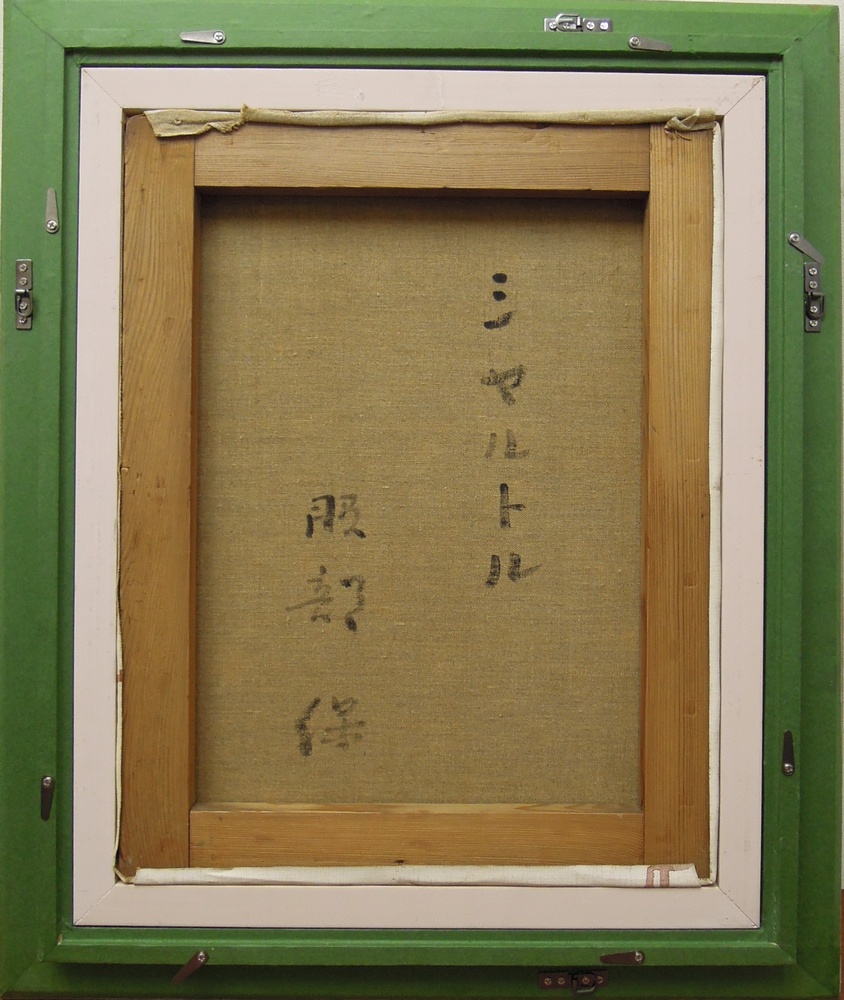 シャルトル
服部 保